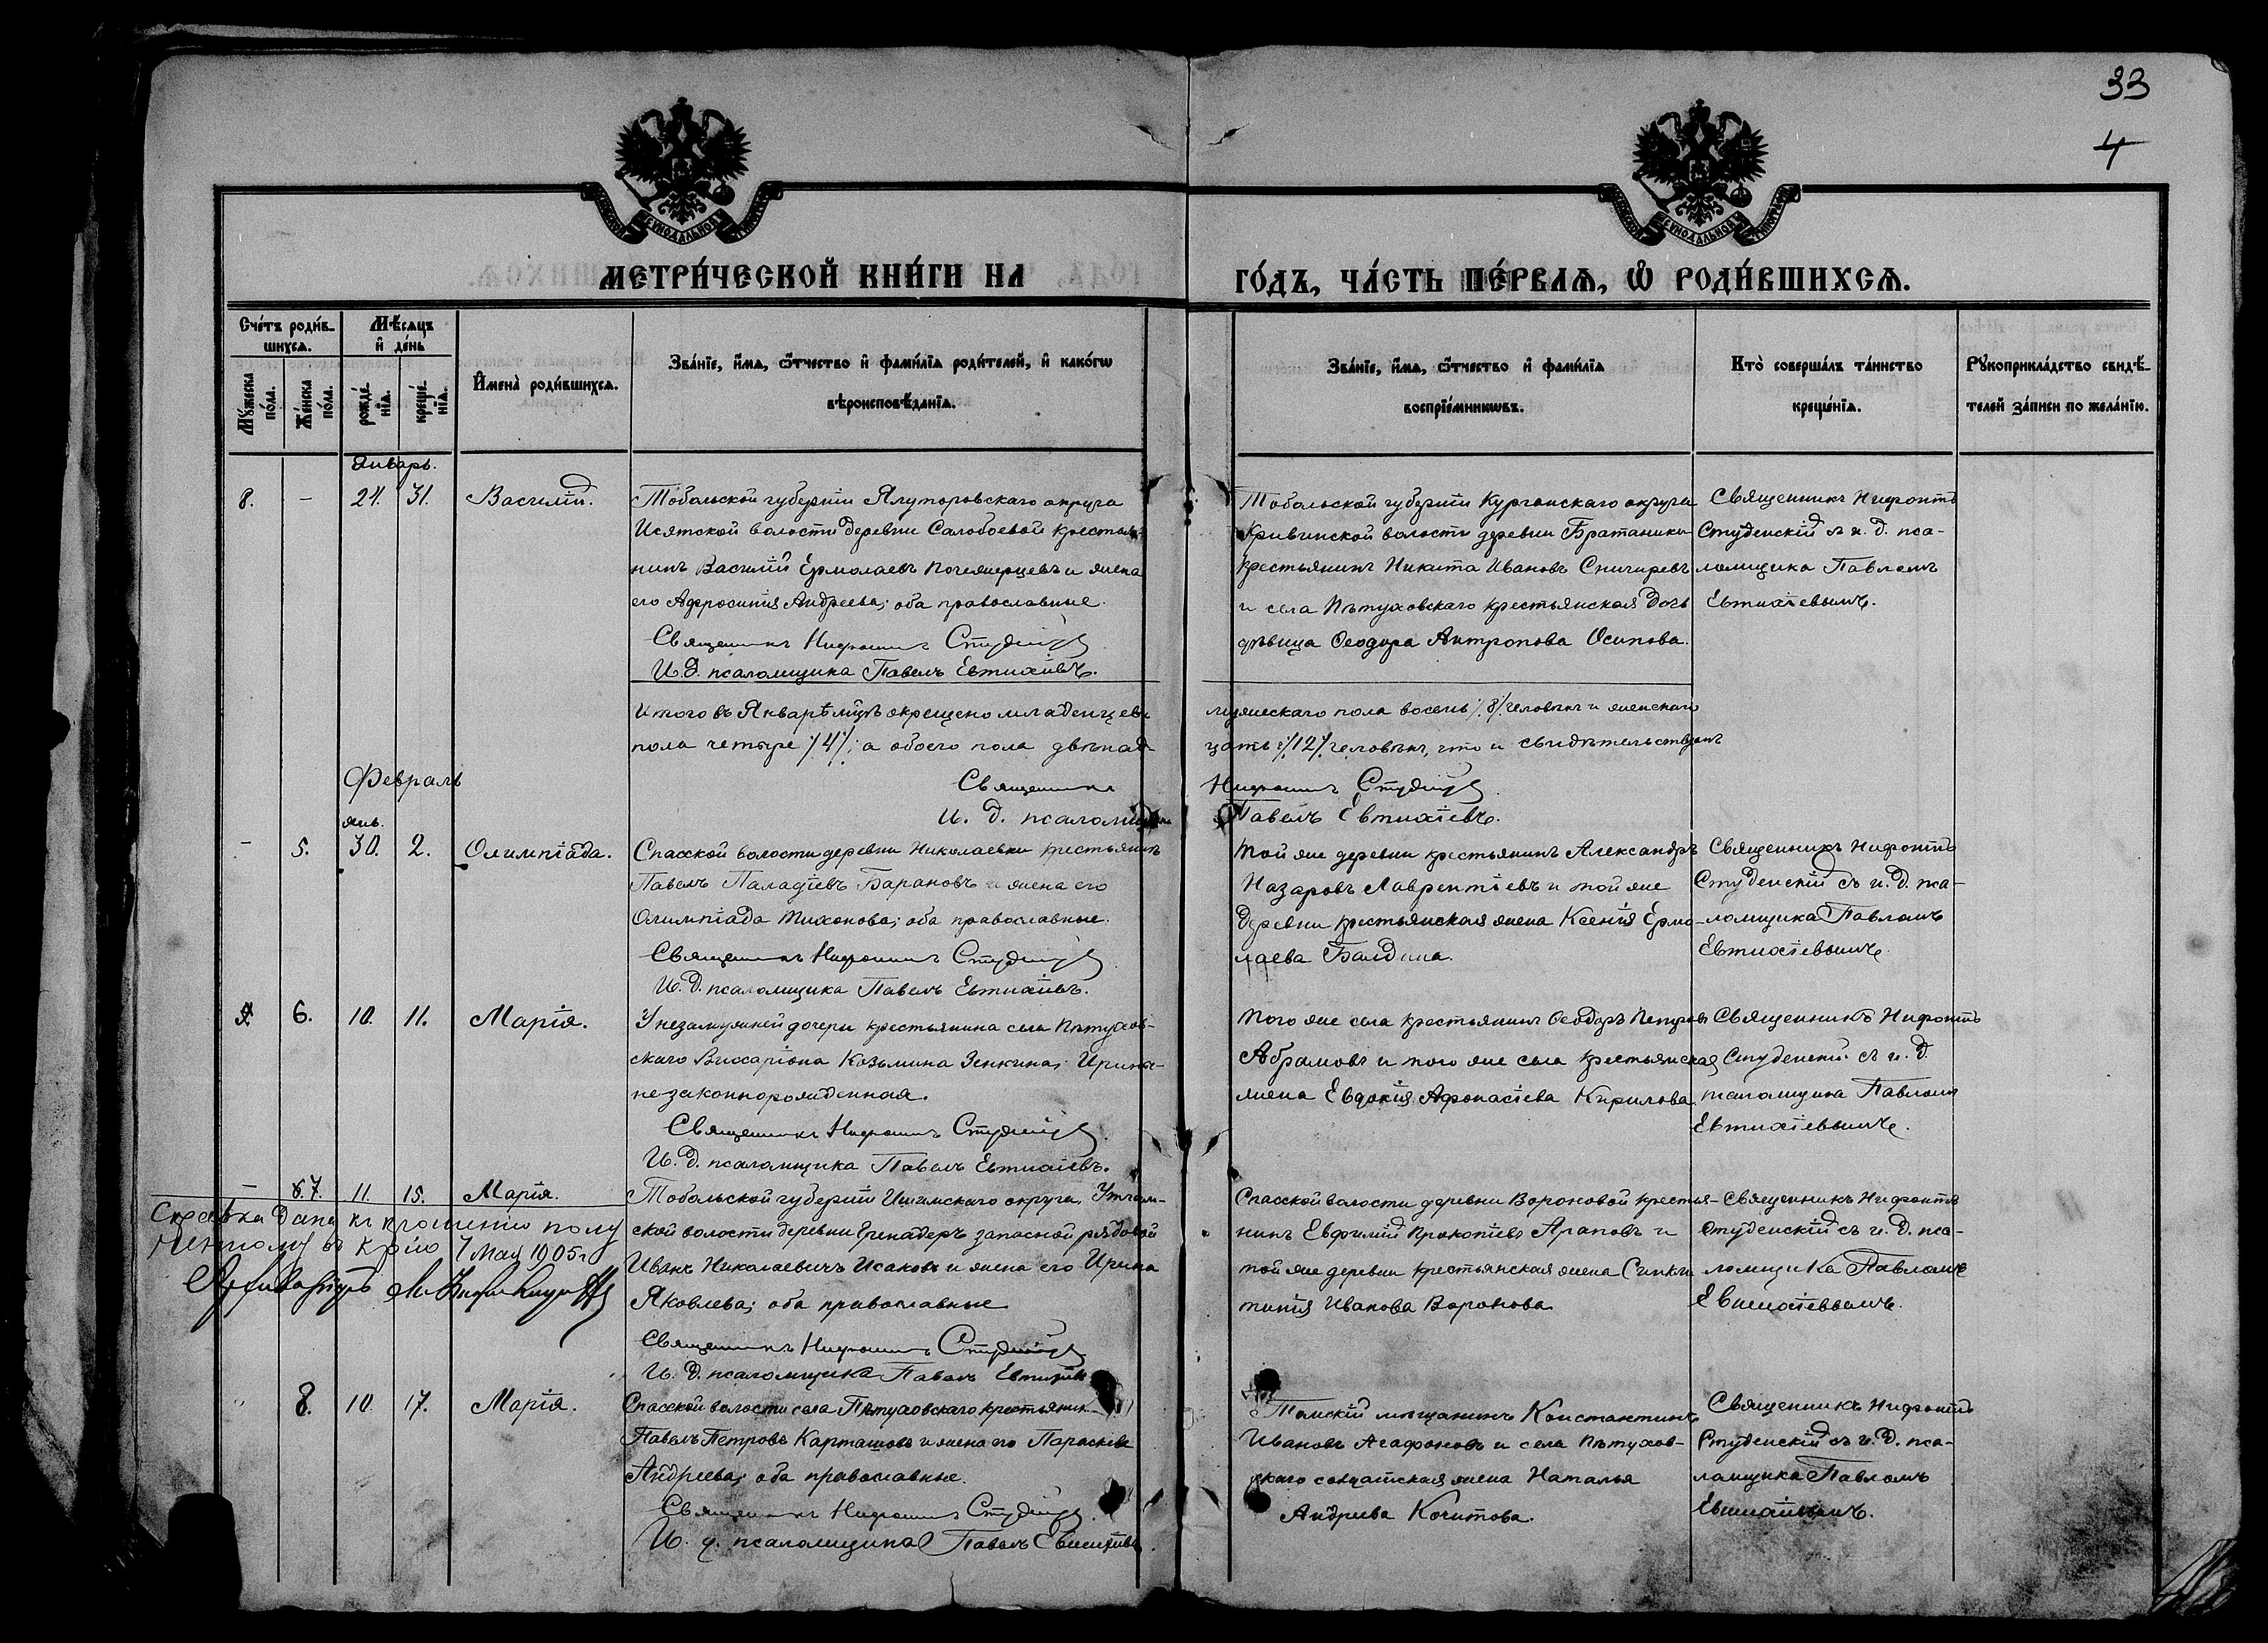 33
4
МЕТРИ́ЧЕСКОЙ КНИ́ГИ НА ГО́ДЪ, ЧА́СТЬ ПЕ́РВАѦ, Ѡ҆ РОДИ́ВШИХСѦ.
Сче́тъ роди́в-
шихсѧ.
Мꙋ́жеска по́ла.
Же́нска по́ла.
Мѣ́сѧцъ и҆ де́нь
рожде́нїѧ.
креще́нїѧ.
И҆мена̀ роди́вшихсѧ.
Зва́нїе, и҆́мѧ, ѻ҆́тчество и҆ фами́лїѧ роди́телей, и҆ како́гѡ
вѣроисповѣ́данїѧ.
Зва́нїе, и҆́мѧ, ѻ҆́тчество и҆ фами́лїѧ
воспрїе́мникѡвъ.
Кто̀ соверша́лъ та́инство
креще́нїѧ.
Рꙋкоприкла́дство свидѣ́-
телей за́писи по жела́нїю.
Январь.
8. – 24. 31. Василій.
Тобольской губерніи Ялуторовскаго округа
Исятской волости деревни Салобоевой крестья-
нинъ Василій Ермолаевъ и жена
его Афросинія Андреева; оба православные.
Священникъ Нифонтъ Студенскій
И. д. псаломщика Павелъ Евтихіевъ.
Тобольской губерніи Курганскаго округа
Кривинской волости деревни Братаники
крестьянинъ Никита Ивановъ Снигиревъ
и села Пѣтуховскаго крестьянская дочь
дѣвица Ѳеодора Антропова Осипова.
Священникъ Нифонтъ
Студенскій съ и. д. пса-
ломщика Павломъ
Евтихіевымъ.
Итого въ Январѣ м–цѣ окрещено младенцевъ мужескаго пола восемь /8/ человѣкъ и женскаго
пола четыре /4/; а обоего пола двѣнад- цать /12/ человѣкъ, что и свидѣтельствуемъ
Священникъ Нифонтъ Студенскій.
И. д. псаломщика Павелъ Евтихіевъ.
Февраль
янв.
– 5. 30. 2. Олимпіада.
Спасской волости деревни Николаевки крестьянинъ
Павелъ Паладіевъ Барановъ и жена его
Олимпіада Тихонова; оба православные.
Священникъ Нифонтъ Студенскій
И. д. псаломщика Павелъ Евтихіевъ.
Той же деревни крестьянинъ Александръ
Назаровъ Лаврентіевъ и той же
деревни крестьянская жена Ксенія Ермо-
лаева Балдина.
Священникъ Нифонтъ
Студенскій съ и. д. пса-
ломщика Павломъ
Евтихіевымъ.
6. 10. 11. Марія.
У незамужней дочери крестьянина села Пѣтухов-
скаго Виссаріона Козьмина Зенкина, Ирины-
незаконнорожденная.
Священникъ Нифонтъ Студенскій.
И. д. псаломщика Павелъ Евтихіевъ.
Того же села крестьянинъ Ѳеодоръ Петровъ
Абрамовъ и того же села крестьянская
жена Евдокія Афонасіева Кирилова.
Священникъ Нифонтъ
Студенскій съ и. д.
псаломщика Павломъ
Евтихіевымъ.
– 7. 11. 15. Марія.
Тобольской губерніи Ишимскаго округа, Утчан-
ской волости деревни Гренадеръ запасной рядовой
Иванъ Николаевичъ Исаковъ и жена его Ирина
Яковлева; оба православные
Священникъ Нифонтъ Студенскій
И. д. псаломщика Павелъ Евтихіевъ
Спасской волости деревни Вороновой крестья-
нинъ Евфимій Прокопіевъ Араповъ и
той же деревни крестьянская жена Синкли-
тикія Иванова Воронова.
Священникъ Нифонтъ
Студенскій съ и. д. пса-
ломщика Павломъ
Евтихіевымъ.
Справка дана къ прошенію
7 Мая 1905 г
Архиваріусъ
8. 10. 17. Марія.
Спасской волости села Пѣтуховскаго крестьянин-
Павелъ Петровъ Карташовъ и жена его Параскева
Андреева; оба православные.
Священникъ Нифонтъ Студенскій.
И. д. псаломщика Павелъ Евтихіевъ.
Томскій мѣщанинъ Константинъ
Ивановъ Агафоновъ и села Пѣтухов-
скаго солдатская жена Наталья
Андреева Кочитова.
Священникъ Нифонтъ
Студенскій съ и. д. пса-
ломщика Павломъ
Евтихіевымъ.